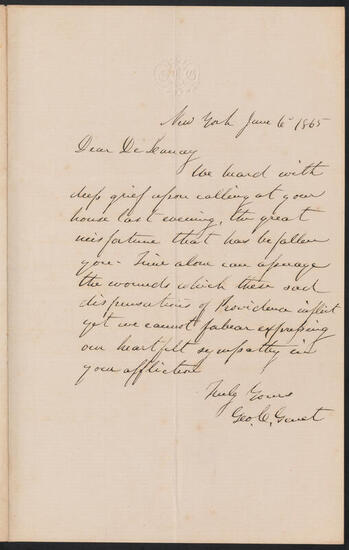 New York June 6 1865
Dear
We heard with
deep grief upon calling at your
house last evening, the great
misfortune that has befallen
you - Time alone can assuage
the wounds which these sad
dispensations of Providence inflict
yet we cannot forbear expressing
our heartfelt sympathy in
your affliction
Truly Yours
Geo. C. Genet